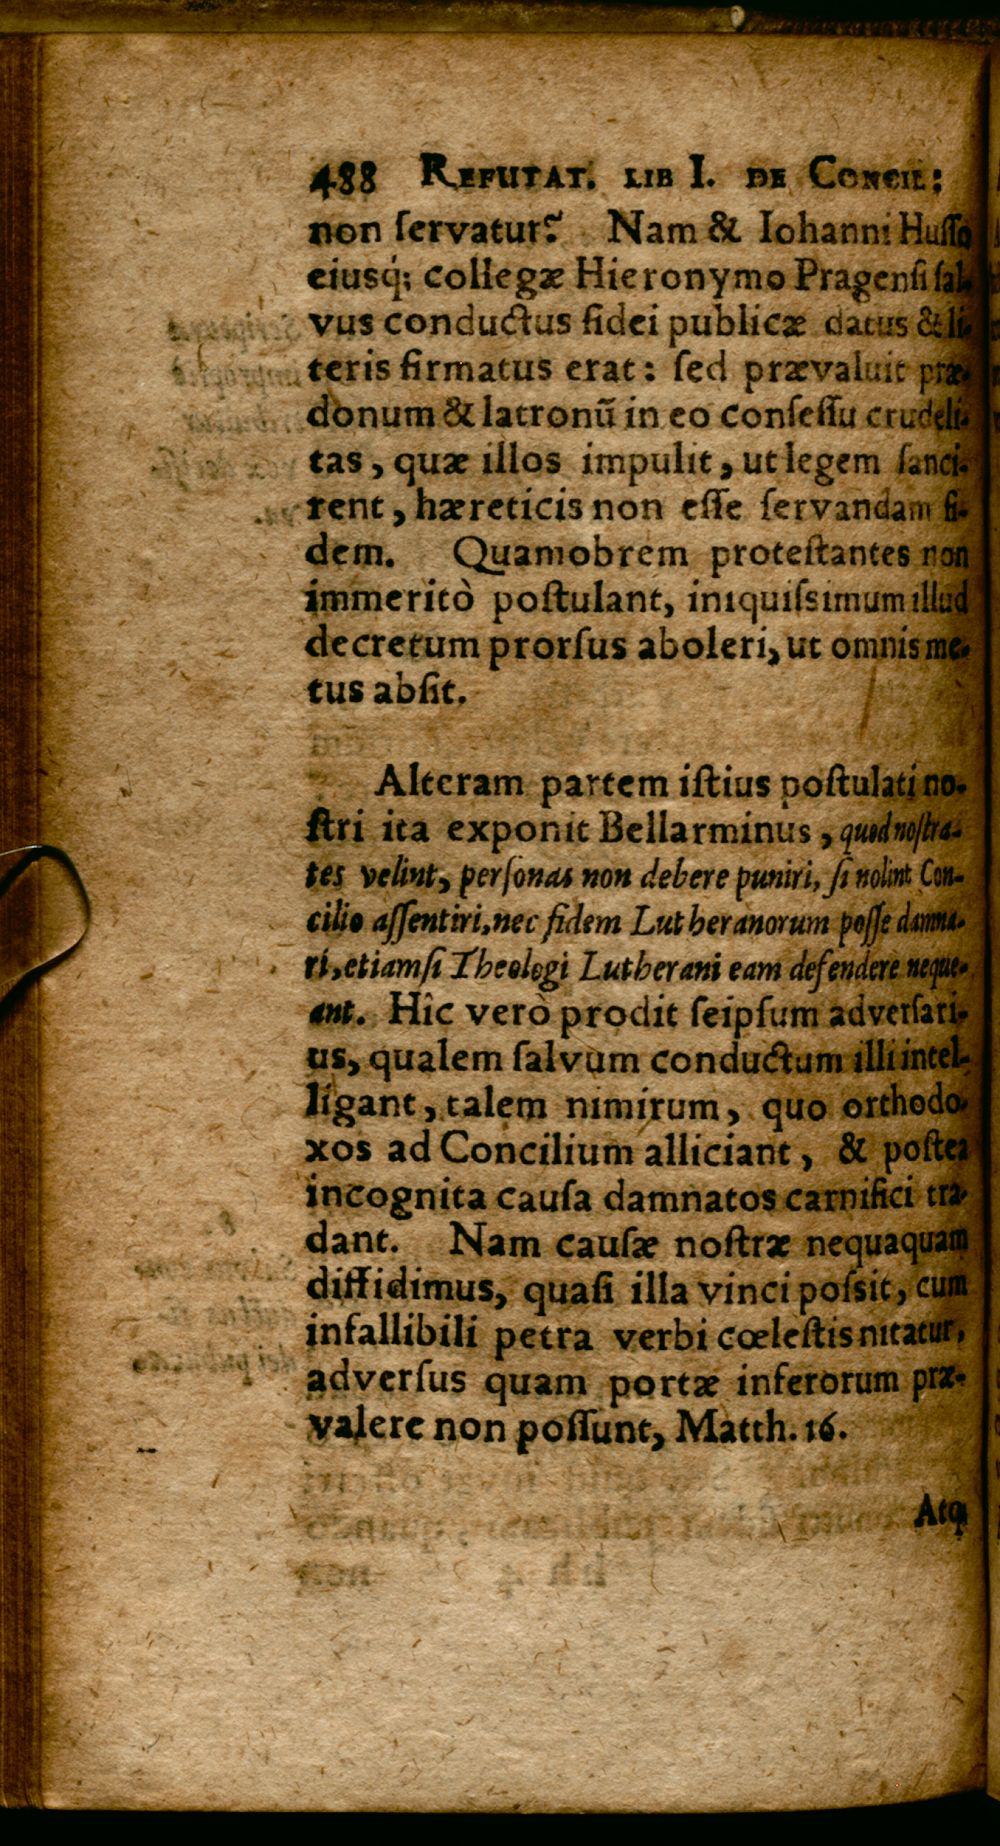 488 REFUTAT. LIB I. DE CONCIL:
non ſervatur? Nam & Iohanni Huſſo
eiusq́; collegæ Hieronymo Pragenſi ſal-
vus conductus fidei publicæ datus & li-
teris firmatus erat: ſed prævaluit præ-
donum & latronū in eo conſeſſu crudeli-
tas, quæ illos impulit, ut legem ſanci-
rent, hæreticis non eſſe ſervandam fi-
dem. Quamobrem proteſtantes non
immeritò poſtulant, iniquiſsimum illud
decretum prorſus aboleri, ut omnis me-
tus abſit.
Alteram partem iſtius poſtulati no-
ſtri ita exponit Bellarminus, quod noſtra-
tes velint, perſonas non debere puniri, ſi nolint Con-
cilio aſſentiri, nec fidem Lutheranorum poſſe damna-
ri, etiamſi Theologi Lutherani eam defendere neque-
ant. Hîc verò prodit ſeipſum adverſari-
us, qualem ſalvum conductum illi intel-
ligant, talem nimirum, quo orthodo-
xos ad Concilium alliciant, & poſtea
incognita cauſa damnatos carnifici tra-
dant. Nam cauſæ noſtræ nequaquam
diffidimus, quaſi illa vinci poſsit, cum
infallibili petra verbi cœleſtis nitatur,
adverſus quam portæ inferorum præ-
valere non poſſunt, Matth. 16.
Atq